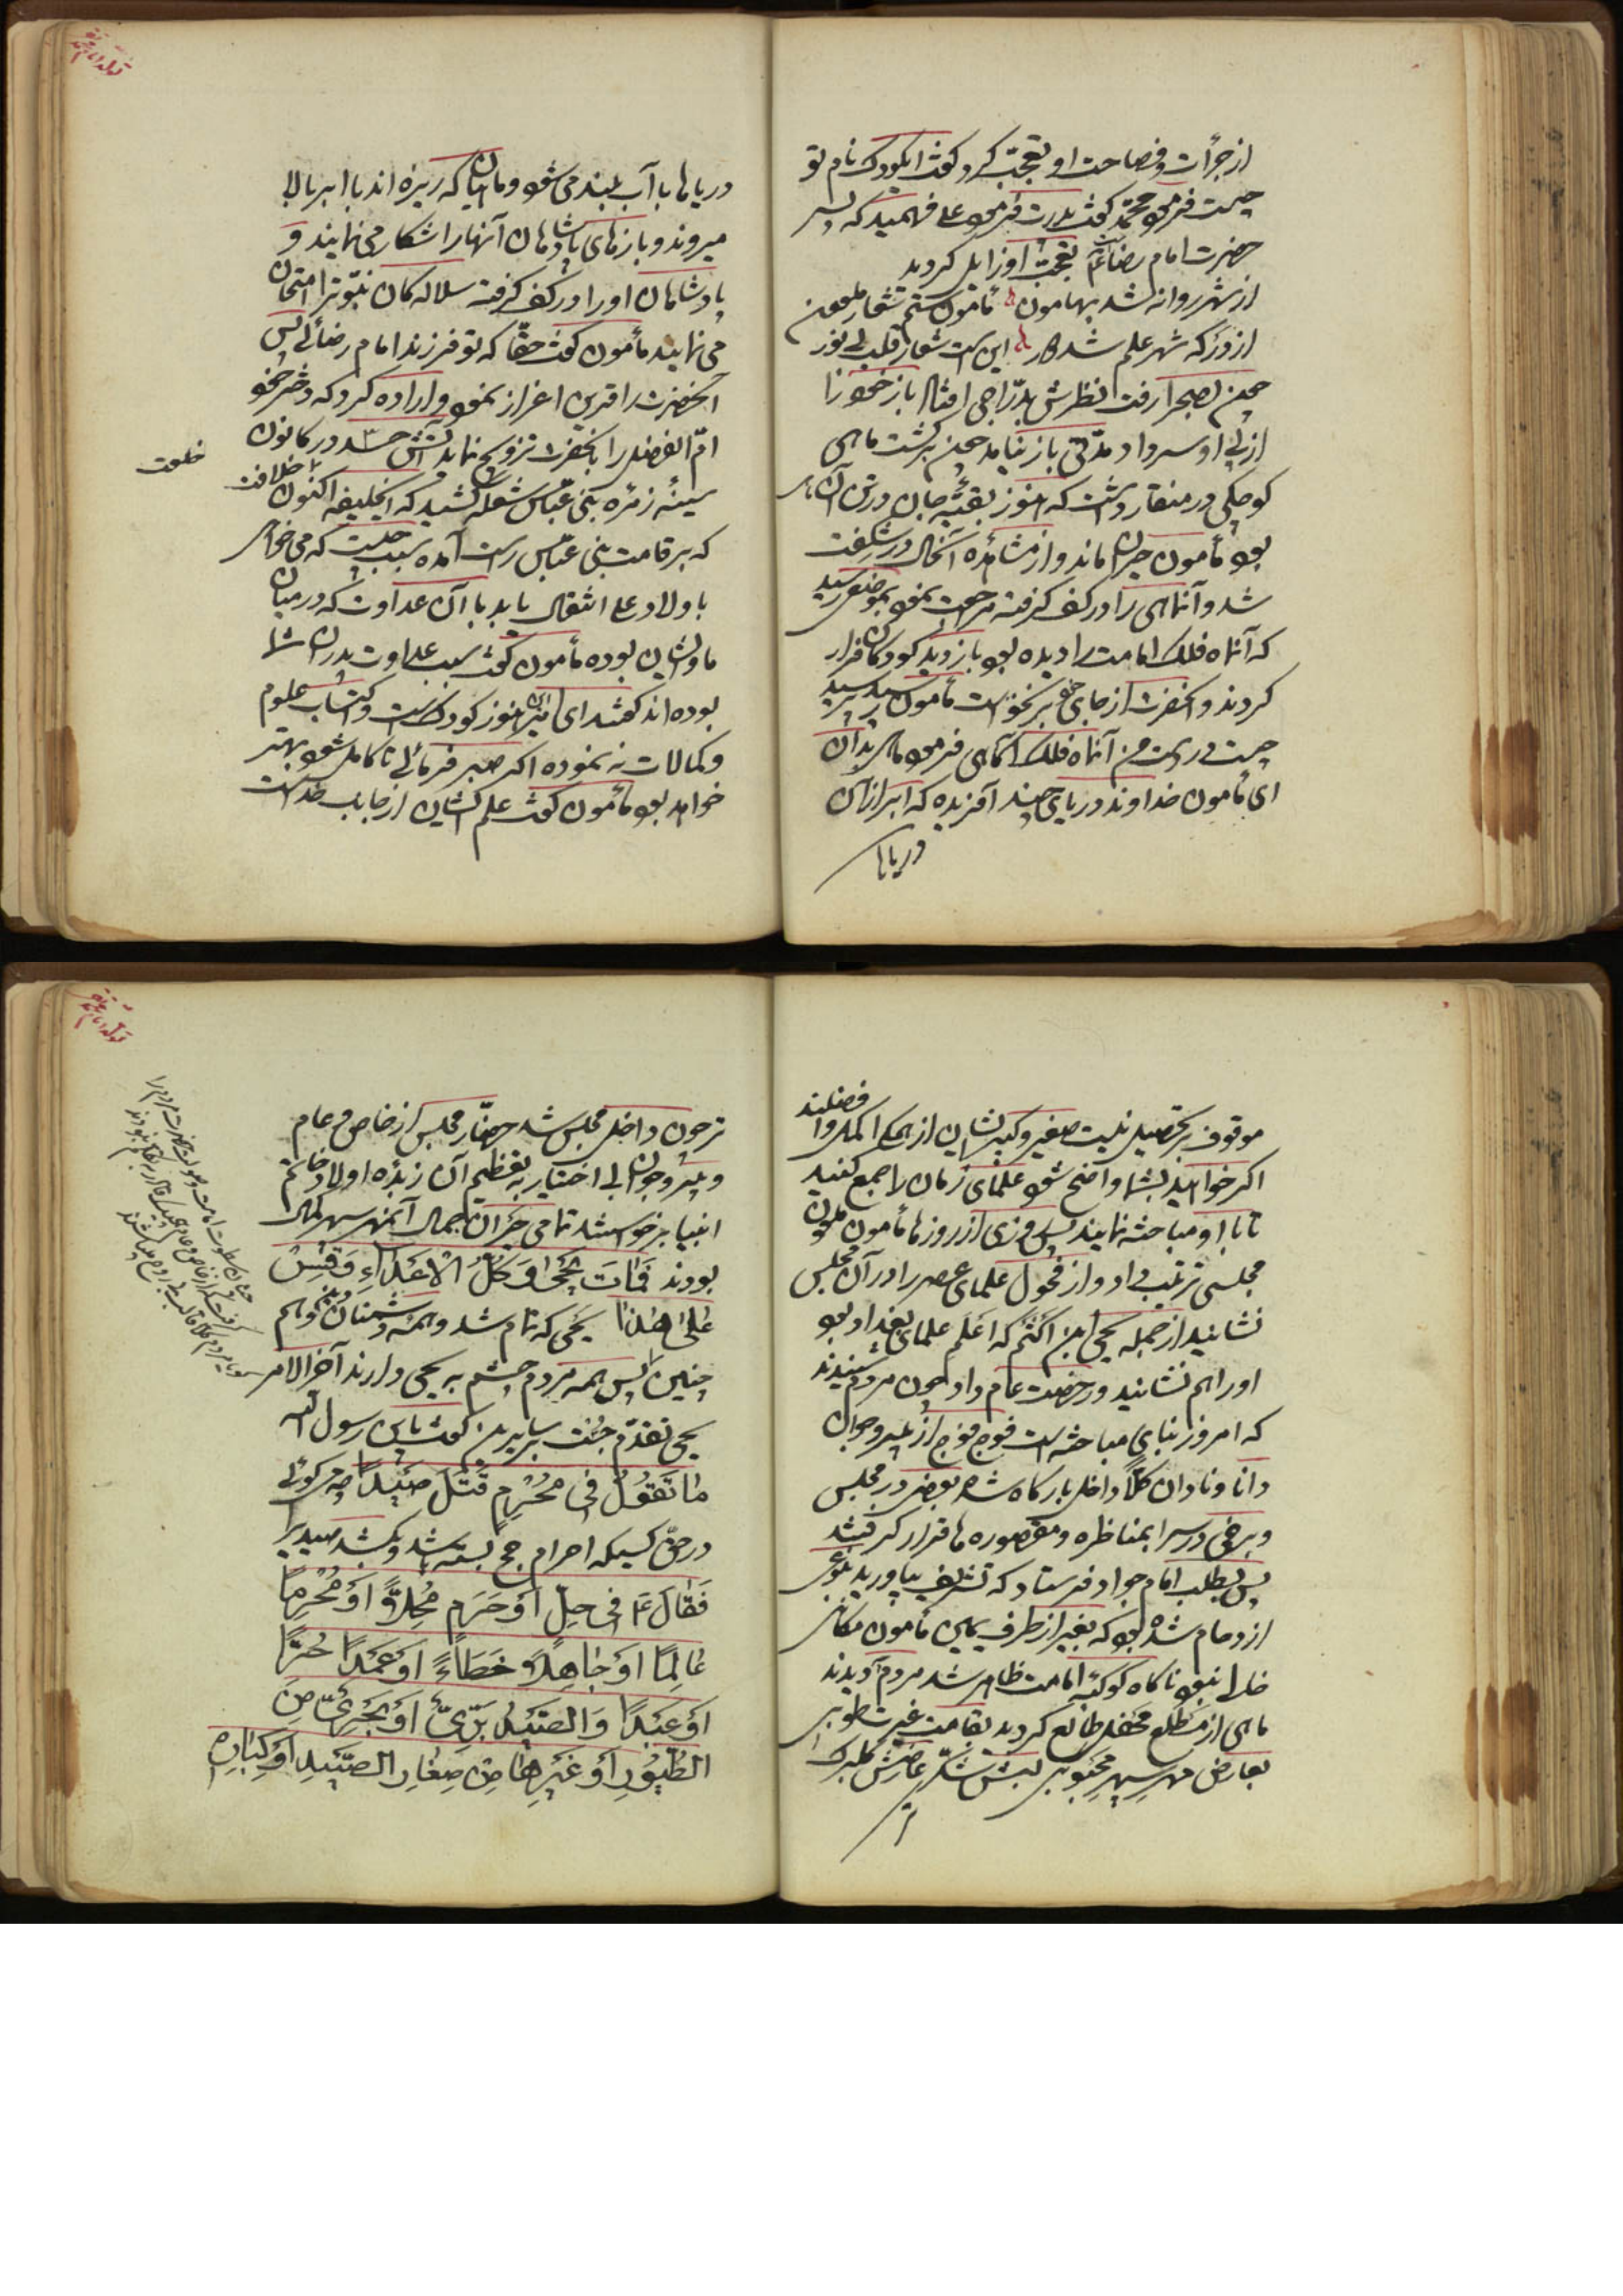 از جرأت و فصاحت او تعجب کرد گفت ایکودک نام تو
چیست فرمود محمد گفت پدرت فرمود علی فهمید که پسر
حضرت امام رضا است تعجب او زایل گردید
از شهر روانه شد بهامون مأمون ستم شعار ملعون
از در که شهر علم شد این است شعار قلب بی نور
چون بصحرا رفت نظرش بدراجی افتاد باز خود را
از پی او سر داد مدتی باز نیامد چون برگشت ماهی
کوچکی در منقار داشت که هنوز بقیه جان در تن آن
بود مأمون حیران ماند و از مشاهده آنحال در شگفت
شد و آنماهی را در کف گرفته مراجعت نمود بموضعی رسید
که آنماه فلک امامت را دیده بود باز دید کودکان فرار
کردند و آنحضرت از جای خود برنخواست مأمون پرسید
چیست در دست من آنماه فلک فرمود
ای مأمون خداوند دریای چند آفریده که ابر از آن
دریاها
دریاها با آب بلند می شود و ماهیان که ریزه اند با ابر بالا
میروند و بازهای پادشاهان آنها را شکار می نمایند و
پادشاهان او را در کف گرفته سلاله کان نبوت را امتحان
می نمایند مأمون گفت حقا که تو فرزند امام رضائی پس
آنحضرت را قرین اعزاز نمود و اراده کرد که دختر خود
ام الفضل را بآنحضرت تزویج نماید آتش حسد در کانون
سینه زمره بنی عباس شعله کشید که ایخلیفه اکنون خلافت
خلعت
که بر قامت بنی عباس راست آمده سبب چیست که می خواهی
باولاد علی انتقال یابد با آن عداوت که در میان
ما و ایشان بوده مأمون گفت سبب عداوت پدران شما
بوده اند گفتند ای امیر این هنوز کودک است و اکتساب علوم
و کمالات نه نموده اگر صبر فرمائی تا کامل شود بهتر
خواهد بود مأمون گفت علم ایشان از جانب خداست
موقوف بر تحصیل نیست صغیر و کبیر ایشان از همه اکمل و افضلند
اگر خواهید بشما واضح شود علمای زمان را جمع کنید
تا با او مباحثه نمایند پس روزی از روزها مأمون ملعون
مجلسی ترتیب داد و از فحول علمای عصر را در آن مجلس
نشانید از جمله یحیی ابن اکثم که اعلم علمای بغداد بود
او را هم نشانید و رخصت عام داد چون مردم شنیدند
که امروز بنای مباحثه است فوج فوج از پیر و جوان
دانا و نادان کلاً داخل بارگاه شده بعضی در مجلس
و برخی در سرا بمناظره و مقصوره ها قرار گرفتند
پس بطلب امام جواد فرستاد که تشریف بیاورید بنوعی
ازدحام شده بود که بغیر از طرف یمین مأمون مکانی
خالی نبود ناگاه کوکبه امامت ظاهر شد مردم دیدند
ماهی از مطلع محفل طالع گردید بقامت غیرت طوبی
بعارض مهر سپهر محبوبی لبش شکر عارضش گلبرگ
تر چون داخل مجلس شد حضار مجلس از خاص و عام
و پیر و جوان بی اختیار به تعظیم آن زبده اولاد خاتم
انبیا برخواستند تمامی حیران جمال آنمهر سپهر کمال
بودند فَمَاتَ یَحْیَی وَ کُلُّ الْأَعْدَاءِ وَ قِسْ
عَلیٰ هٰذَا یحیی که تمام شد و همه دشمنان و هم
چنین پس همه مردم چشم به یحیی دارند آخرالامر
یحیی تقدم جُست گفت یابن رسول الله
مَا تَقُولُ فی مُحْرِمٍ قَتَلَ صَیْداً چه میگوئی
در حق کسیکه احرام حج بسته باشد و بکشد صیدی
فَقَالَ ع فی حِلٍّ اَوْ حَرَمٍ مُحِلاًّ اَوْ مُحْرِماً
عَالِماً اَوْ جَاهِلاً خَطَاءً اَوْ عَمْداً حُرّاً
اَوْ عَبْداً وَ الصَّیْدُ بَرِّیٌّ اَوْ بَحْرِیٌّ مِنَ
الطُّیُورِ اَوْ غَیْرِهَا مِنْ صِغَارِ الصَّیْدِ اَوْ کِبَارِهِ